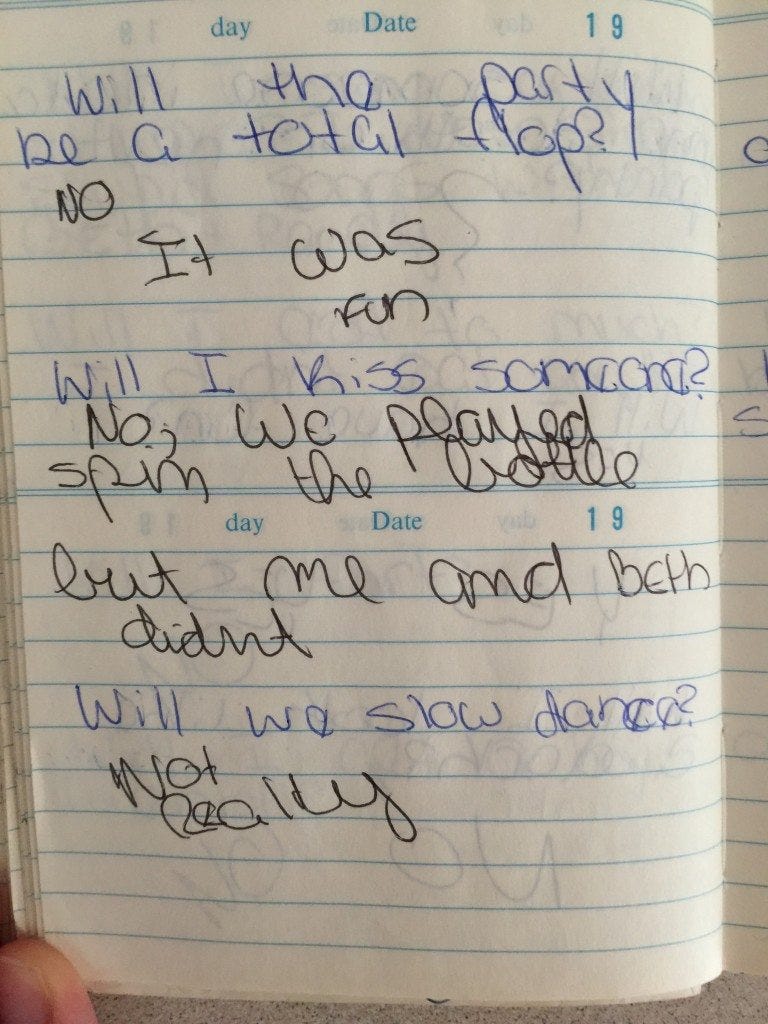 day Date 19
Will the party
be a total flop?
NO
It was
fun
Will I kiss someone?
No, we played
spin the bottle
day Date 19
but me and Beth
didnt
Will we slow dance?
Not
Really